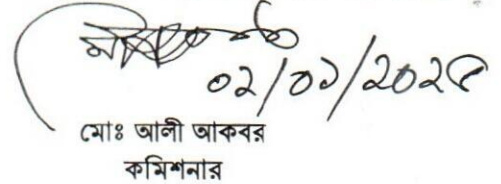 ০২/০১/২০২৫
মোঃ আলী আকবর
কমিশনার